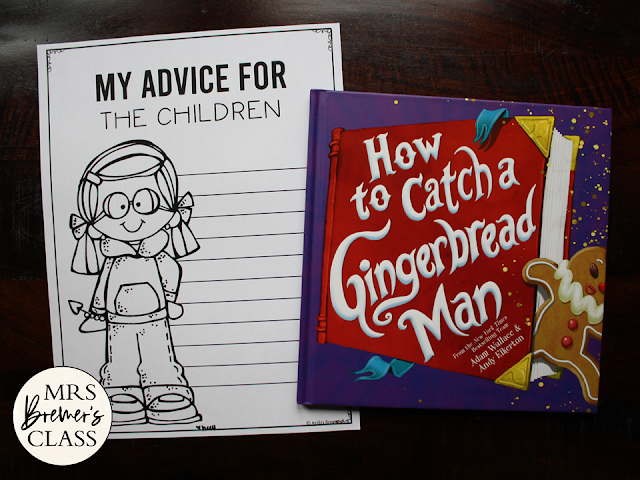 MY ADVICE FOR
THE CHILDREN
How
to Catch a
Gingerbread
Man
From the New York Times
Bestselling Team
Adam Wallace &
Andy Elkerton
MRS
Bremer's
CLASS